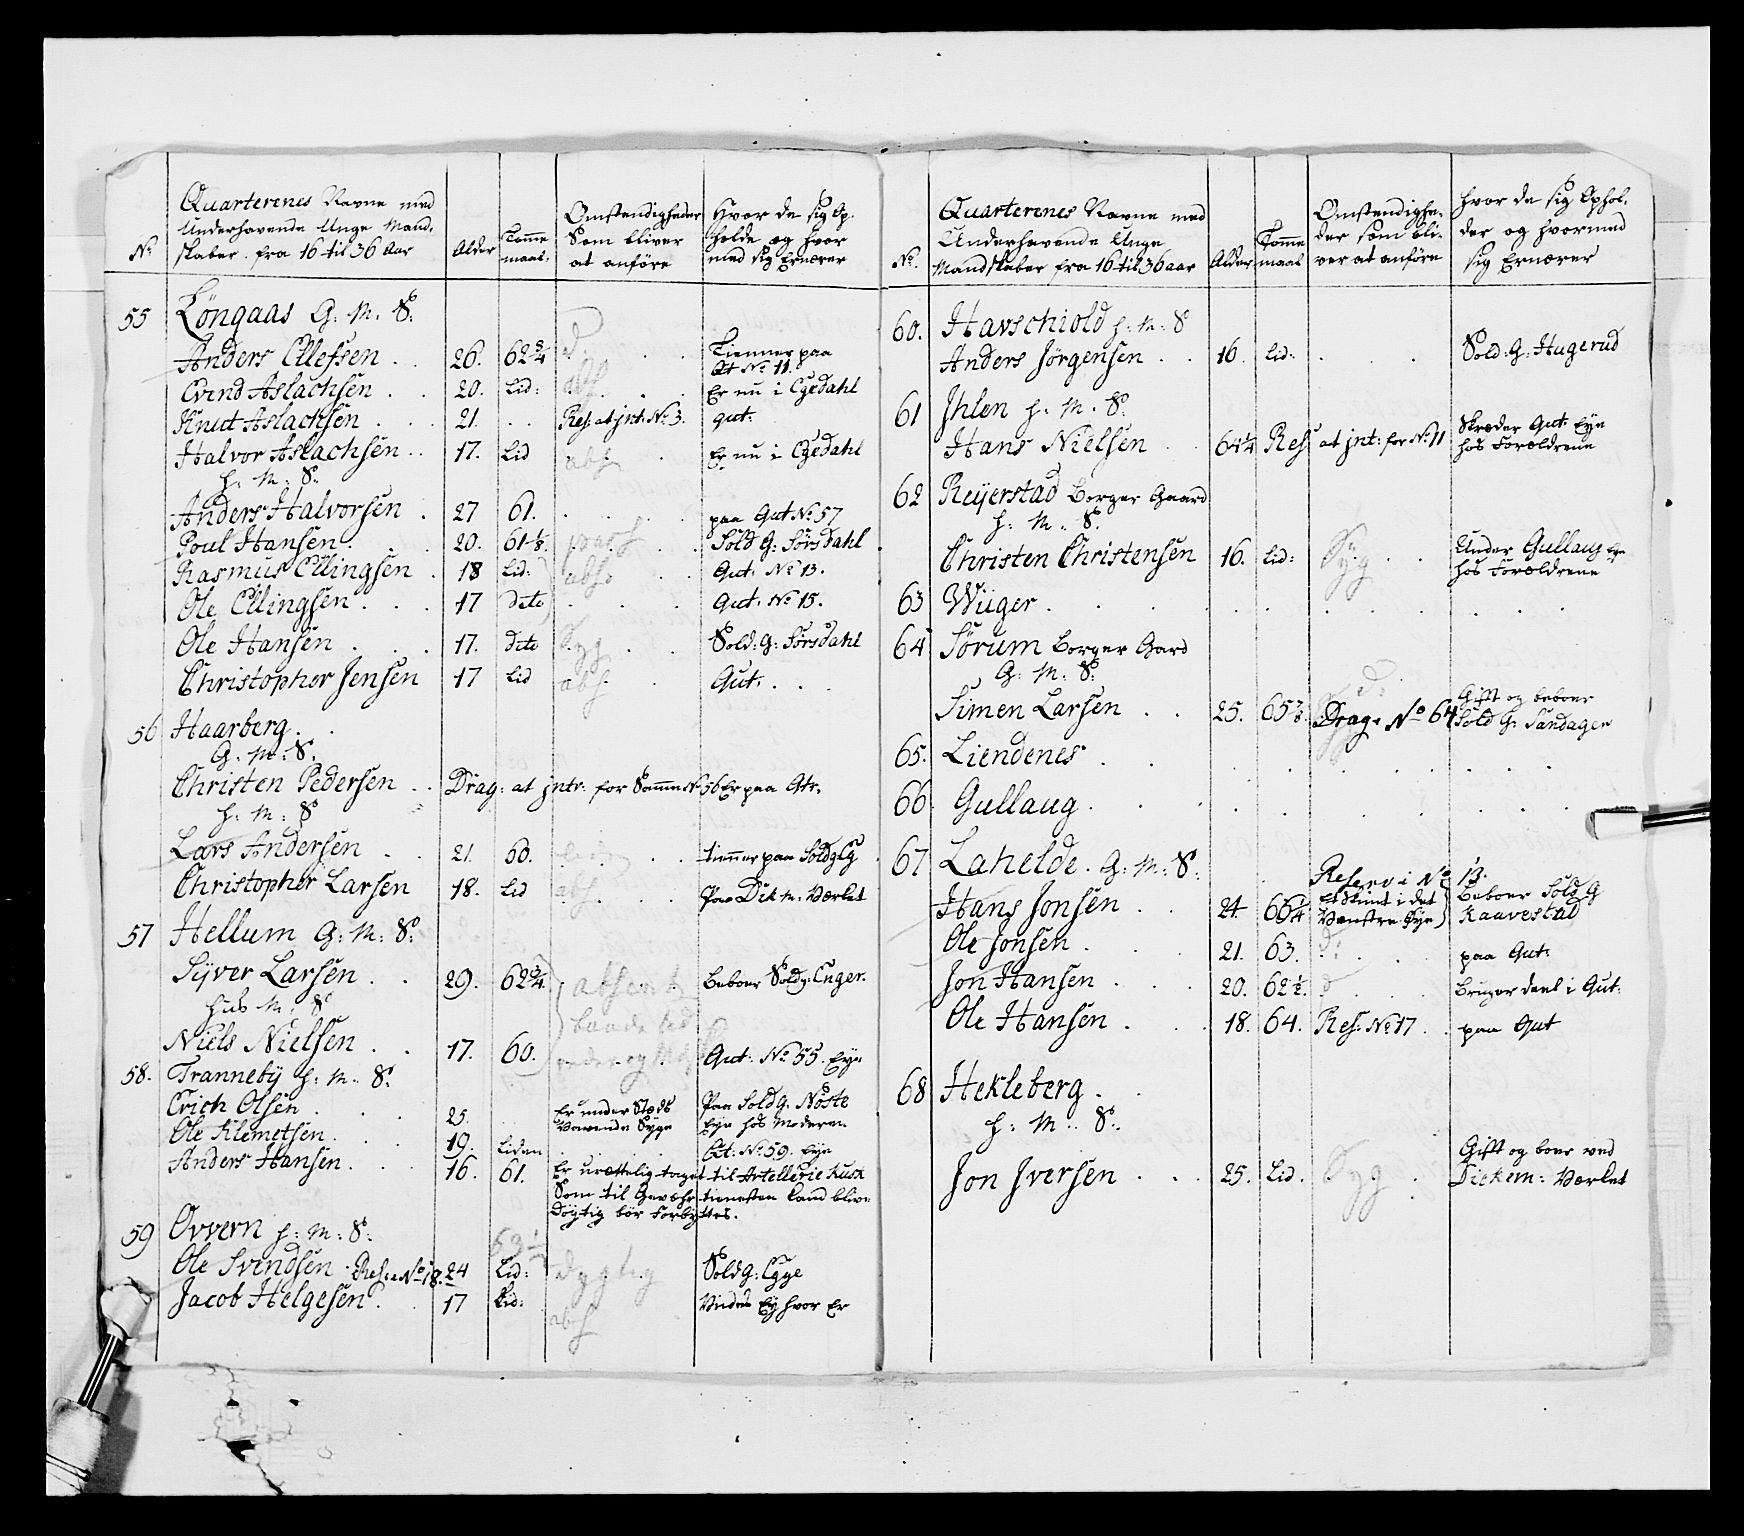 No
Quarterenes Navne med
Underhavende Unge Mand,
skaber. fra 16 til 36 Aar
Alder
Tomme
maal.
Omstendigheder
Som bliver
at anföre
Hvor de sig Op.
holde og hvor
med sig Ernærer
55 Löngaas G: M: S:
Anders Ellefsen . . 26. 62 3/4 d. . . Tienner paa
At No 11.
Evind Aslachsen . . 20. Lid: abs . . Er nu i Egedahl
Knut Aslachsen . . . 21. . . Res: at jnt: No 3. gut:
Halvor Aslachsen . . 17. Lid abs . Er nu i Egedahl
h: M: S:
Anders Halvorsen . 27 61. . . . paa Gut No 57
Poul Hansen . . 20. 61 1/8. . . Sold G: Sörsdahl
Rasmus Ellingsen . 18 Lid: abs. . . Gut. No 13.
Ole Ellingsen . . . 17 dito . . . Gut. No 15.
Ole Hansen . . . 17. dito Syg . . Sold: G: Sörsdahl
Christopher Jensen 17 Lid abs . Gut. . .
56 Haarberg . .
G: M: S:
Christen Pedersen . . Drag: at jntr: for Samme No 56 Er paa Gtr.
h: M: S
Lars Andersen . . 21. 60. . . . tienner paa Soldg Eg
Christopher Larsen 18. Lid abs. . . Paa Dik m: Værket
57 Hellum G: M: S:
Syver Larsen . . 29. 62 3/4 absent Beboer Soldg: Enger.
hus M: S baade
Niels Nielsen . . 17. 60. Gut: No 55. Eye
58. Tranneby h: M: S:
Erich Olsen . . . 25. Er under Stæds Paa Sold G. Nöste
Værende Syge Eye hos Moderen
Ole Klemetsen . . . 19. Liden . . . Gt: No 59. Eye
Anders Hansen . . . 16. 61. Er urættelig taget til Artellerie Kusk
Som til Gevæhr tienesten kand blive
Dögtig bör Forbyttes.
59 Ovvern h: M: S:
Ole Svendsen . Res: No 18. 24 Lid: Dygtig Sold G: Egge
Jacob Helgesen . . 17 Lid: abs Vides Ey hvor Er
No.
Quarterenes Navne med
Underhavende Unge
Mandskaber fra 16 til 36 aar
Alder
Tomme
maal
Omstendighe-
der som bli-
ver at anföre
hvor de sig Ophol-
der og hvormed
sig Ernærer
60. Havschiold h: M: S
Anders Jörgensen . . 16. Lid: . . . Sold: G: Hugerud
61 Jhlen h: M: S:
Hans Nielsen . . 64 1/4 Res: at jnt: for No 11 Skræder Gut. Eye
hos Forældrene
62 Reyerstad Borger Gaard
h: M: S:
Christen Christensen 16. Lid: Syg . . Under Gullaug Eye
hos Forældrene
63 Wiiger . . . .
64 Sörum Borger Gard
G: M: S: d:
Simen Larsen . . 25. 65 Drag: No 64 Gift og beboer
Sold G: Sandager
65. Liendenes . .
66. Gullaug . . .
67 Lahelde . G: M: S: Reserv i No 13.
Hans Jonsen . . . 24. 65 1/4 i det
Venstre Öye Beboer Sold G
Kaavestad
Ole Jonsen . . 21. 63. d: . . paa Gut:
Jon Hansen . . . 20. 62 1/2. d . . Bruger deel i Gut:
Ole Hansen . . . 18. 64. Res: No 17 . . paa Gut
68 Hekleberg . .
h: M: S:
Jon Jversen . . . 25. Lid. Syg . Gift og boer ved
Diekem: Værket